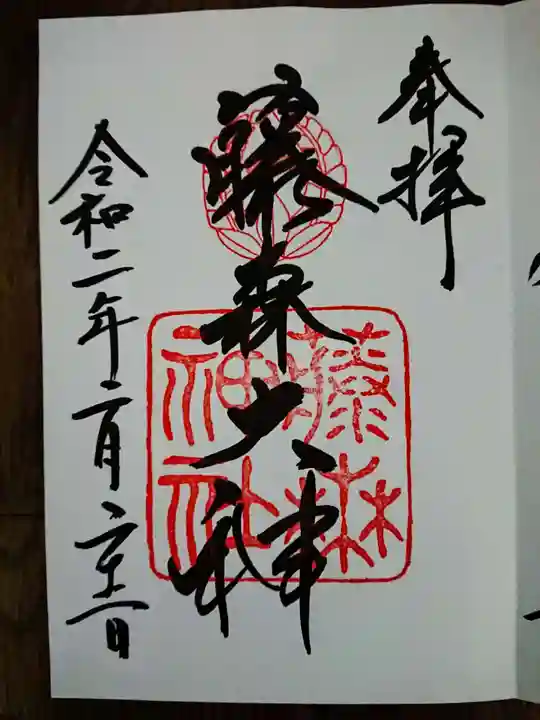 奉拝
藤森大神
令和二年二月二十一日
藤森
神社